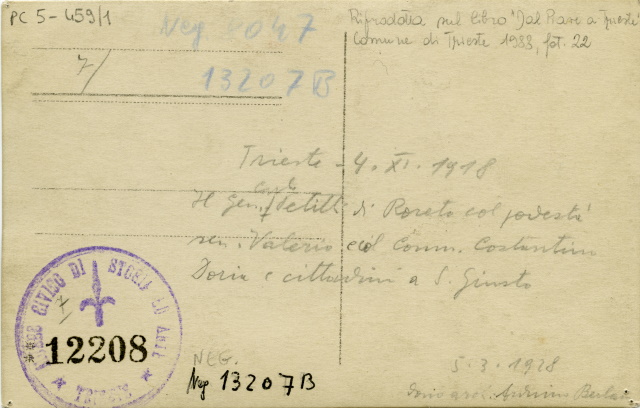 PC 5-459/1
Neg 4047
7/
13207B
Riprodotta sul libro "Dal Piave a Trieste"
Comune di Trieste 1983, fot. 22
Trieste - 4. XI. 1918
Carlo
Il Gen. Petitti di Roreto col podestà
sen. Valerio e col Comm. Costantino
Doria e cittadini a S. Giusto
MUSEO CIVICO DI STORIA ED ARTE
TRIESTE
12208
NEG.
Neg 13207B
5-3-1928
dono